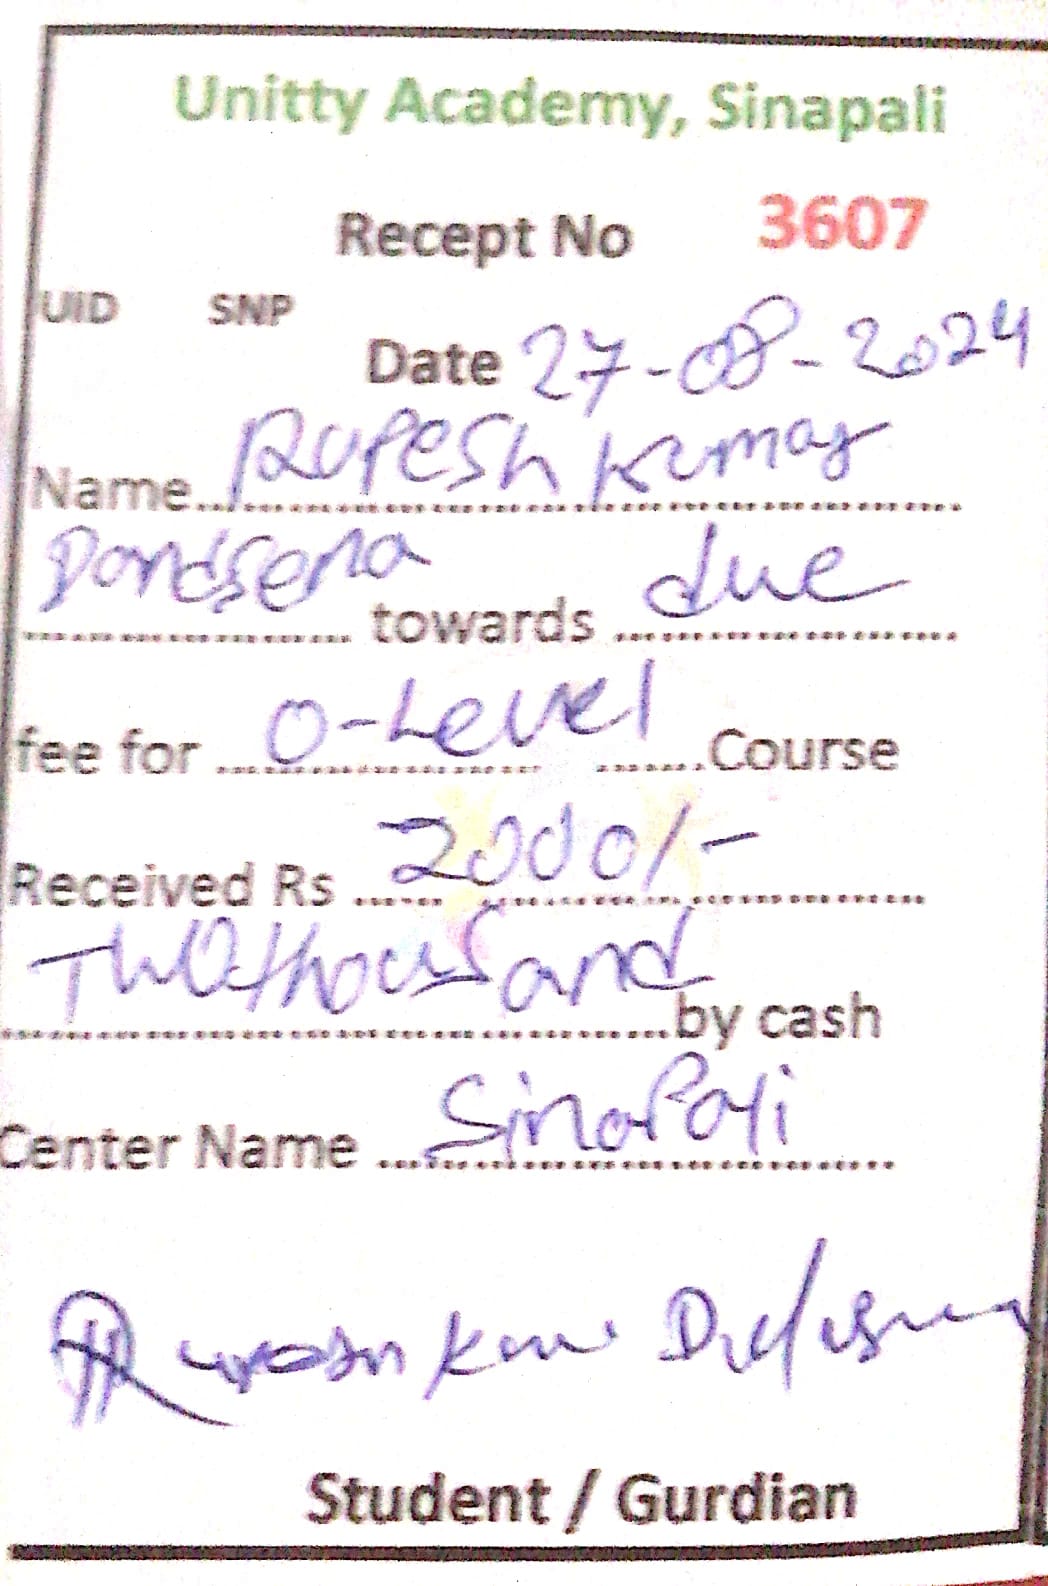 Unitty Academy, Sinapali
Recept No 3607
UID SNP
Date 27-08-2024
Name.......Rupesh Kumar..........
Dandsena towards due
fee for ....O-Level.... .......Course
Received Rs ......2000/-..........
Twothousand.......by cash
Center Name ...Sinapali...
Student / Gurdian